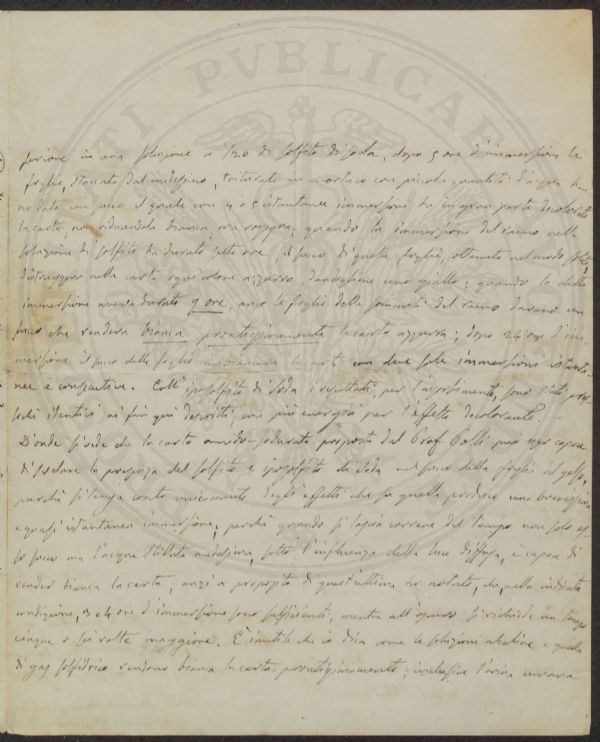 PUBLICAE
sizione in una soluzione a 1/20 di solfito di soda, dopo 5 ore d'immersione le
foglie, staccate dal medesimo, triturate in mortaio con piccola quantità d'acqua han
no dato un succo il quale con 4 o 5 istantanee immersioni ha in gran parte decolorato
la carta, non riducendola bianca ma rossigna; quando la immersione del ramo nella
soluzione di solfito ha durato sette ore, il succo di quelle foglie, ottenuto nel modo solito,
distruggeva nella carta ogni colore azzurro, dandogliene uno giallo; quando la detta
immersione aveva durato 9 ore, anco le foglie della sommità del ramo davano un
succo che rendeva bianca prontissimamente la carta azzurra; dopo 24 ore d'im
mersione il succo delle foglie imbiancava la carta con due sole immersioni istanta
nee e consecutive. Coll'iposolfito di soda i resultati per l'assorbimento, sono stati pres
sochè identici ai fin qui descritti, ma più energici per l'effetto decolorante.
D'onde si vede che la carta amido-iodurata proposta dal Prof Polli può esser capace
di svelare la presenza del solfito e iposolfito di soda nel succo della foglia del gelso,
purchè si tenga conto unicamente degli effetti che su quella produce una brevissima
e quasi istantanea immersione, perchè quando si lascia correre del tempo non solo es
so succo ma l'acqua stillata medesima, sotto l'influenza della luce diffusa, è capace di
render bianca la carta, anzi a proposito di quest'ultima ho notato, che, nella indicata
condizione, 3 o 4 ore d'immersione sono sufficienti, mentre all'oscuro si richiede un tempo
cinque o sei volte maggiore. È inutile che io dica come le soluzioni alcaline e quella
di gaz solfidrico rendono bianca la carta, prontissimamente; inclusive l'orina umana